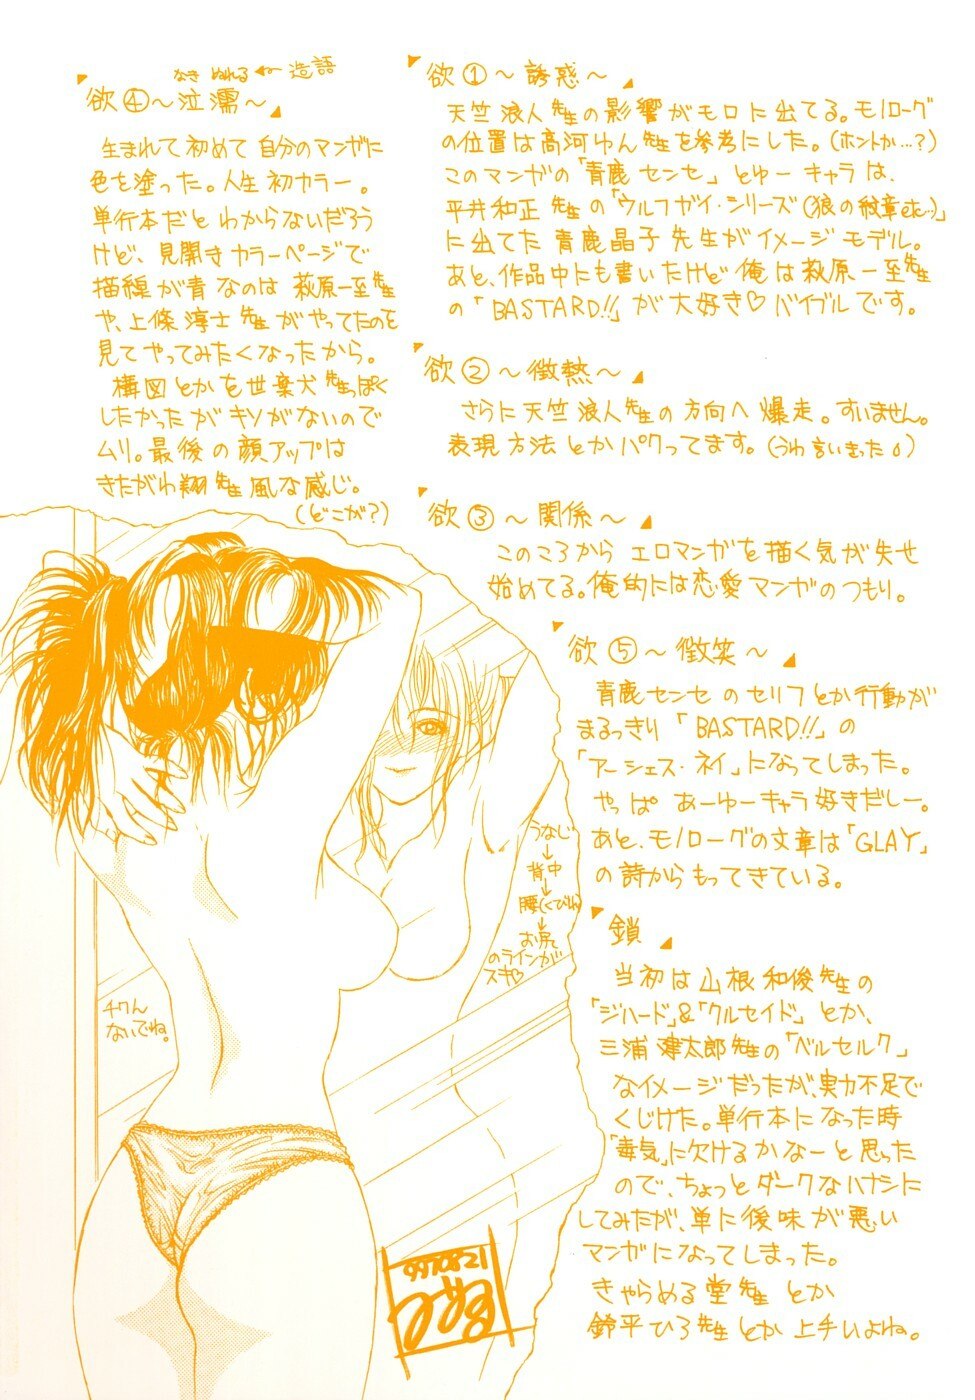 欲①～誘惑～
天竺浪人先生の影響がモロに出てる。モノローグ
の位置は高河ゆん先生を参考にした。(ホントか…?)
このマンガの「青鹿センセ」とゆーキャラは、
平井和正先生の「ウルフガイ・シリーズ(狼の紋章etc…)」
に出てた青鹿晶子先生がイメージモデル。
あと、作品中にも書いたけど俺は萩原一至先生
の「BASTARD!!」が大好き♡バイブルです。
欲②～微熱～
さらに天竺浪人先生の方向へ爆走。すいません。
表現方法とかパクってます。(うわ言いきった)
欲③～関係～
このころからエロマンガを描く気が失せ
始めてる。俺的には恋愛マンガのつもり。
なき ぬれる ← 造語
欲④～泣濡～
生まれて初めて自分のマンガに
色を塗った。人生初カラー。
単行本だとわからないだろう
けど、見開きカラーページで
描線が青なのは萩原一至先生
や、上條淳士先生がやってたのを
見てやってみたくなったから。
構図とかを世棄犬先生っぽく
したかったがキソがないので
ムリ。最後の顔アップは
きたがわ翔先生風な感じ。
(どこが?)
欲⑤～微笑～
青鹿センセのセリフとか行動が
まるっきり「BASTARD!!」の
「アーシェス・ネイ」になってしまった。
やっぱあーゆーキャラ好きだしー。
あと、モノローグの文章は「GLAY」
の詩からもってきている。
鎖
当初は山根和俊先生の
「ジハード」&「クルセイド」とか、
三浦建太郎先生の「ベルセルク」
なイメージだったが、実力不足で
くじけた。単行本になった時
「毒気」に欠けるかなーと思った
ので、ちょっとダークなハナシに
してみたが、単に後味が悪い
マンガになってしまった。
きゃらめる堂先生とか
鈴平ひろ先生とか上手いよね。
うなじ
↓
背中
↓
腰(くびれ)
↓
お尻
のラインが
スキ♡
チクん
ないでね。
970821